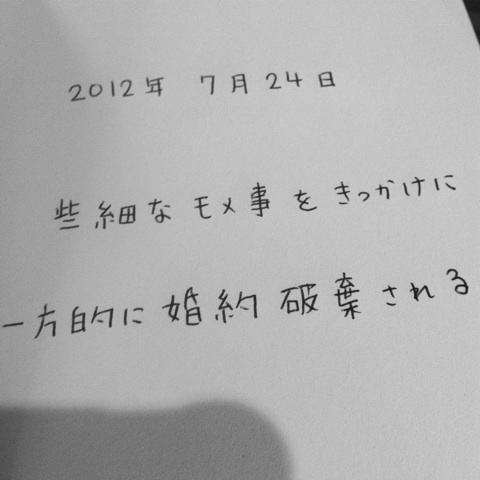 2012年 7月24日
些細なモメ事をきっかけに
一方的に婚約破棄される